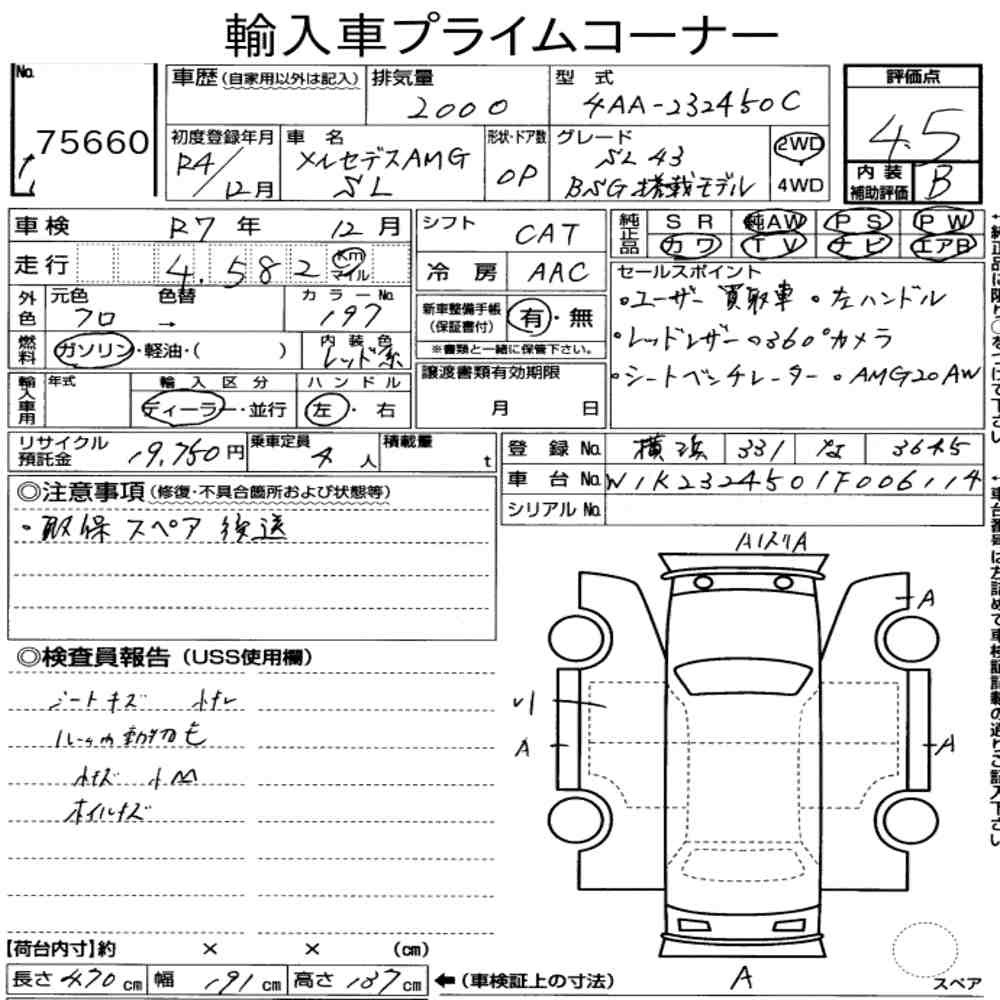 輸入車プライムコーナー
No.
75660
車歴(自家用以外は記入)
排気量
2000
型 式
4AA-232450C
評価点
4.5
初度登録年月
R4/12月
車 名
メルセデスAMG
SL
形状・ドア数
OP
グレード
SL 43
BSG搭載モデル
2WD
4WD
内 装
補助評価
B
車検 R7年 12月
走行 4.582 Km
マイル
シフト CAT
冷 房 AAC
純正品
SR 純AW PS PW
カワ TV ナビ エアB
外色
元色 色替 カラーNo.
クロ → 197
燃料
ガソリン・軽油・( )
内 装 色
レッド系
新車整備手帳
(保証書付)
有・無
※書類と一緒に保管下さい。
セールスポイント
・ユーザー買取車 ・左ハンドル
・レッドレザー ・360°カメラ
・シートベンチレーター ・AMG20AW
輸入車用
年式
輸 入 区 分
ディーラー・並行
ハ ン ド ル
左・右
譲渡書類有効期限
月 日
リサイクル
預託金
19,750円
乗車定員
4人
積載量
t
登 録 No. 横浜 331 な 3645
車 台 No. W1K2324501F006114
シリアル No.
◎注意事項(修復・不具合箇所および状態等)
・取保 スペア 後送
◎検査員報告(USS使用欄)
シートキズ
A
A
A
A
スペア
【荷台内寸】約 × × (cm)
長さ 470cm 幅 191cm 高さ 137cm
←(車検証上の寸法)